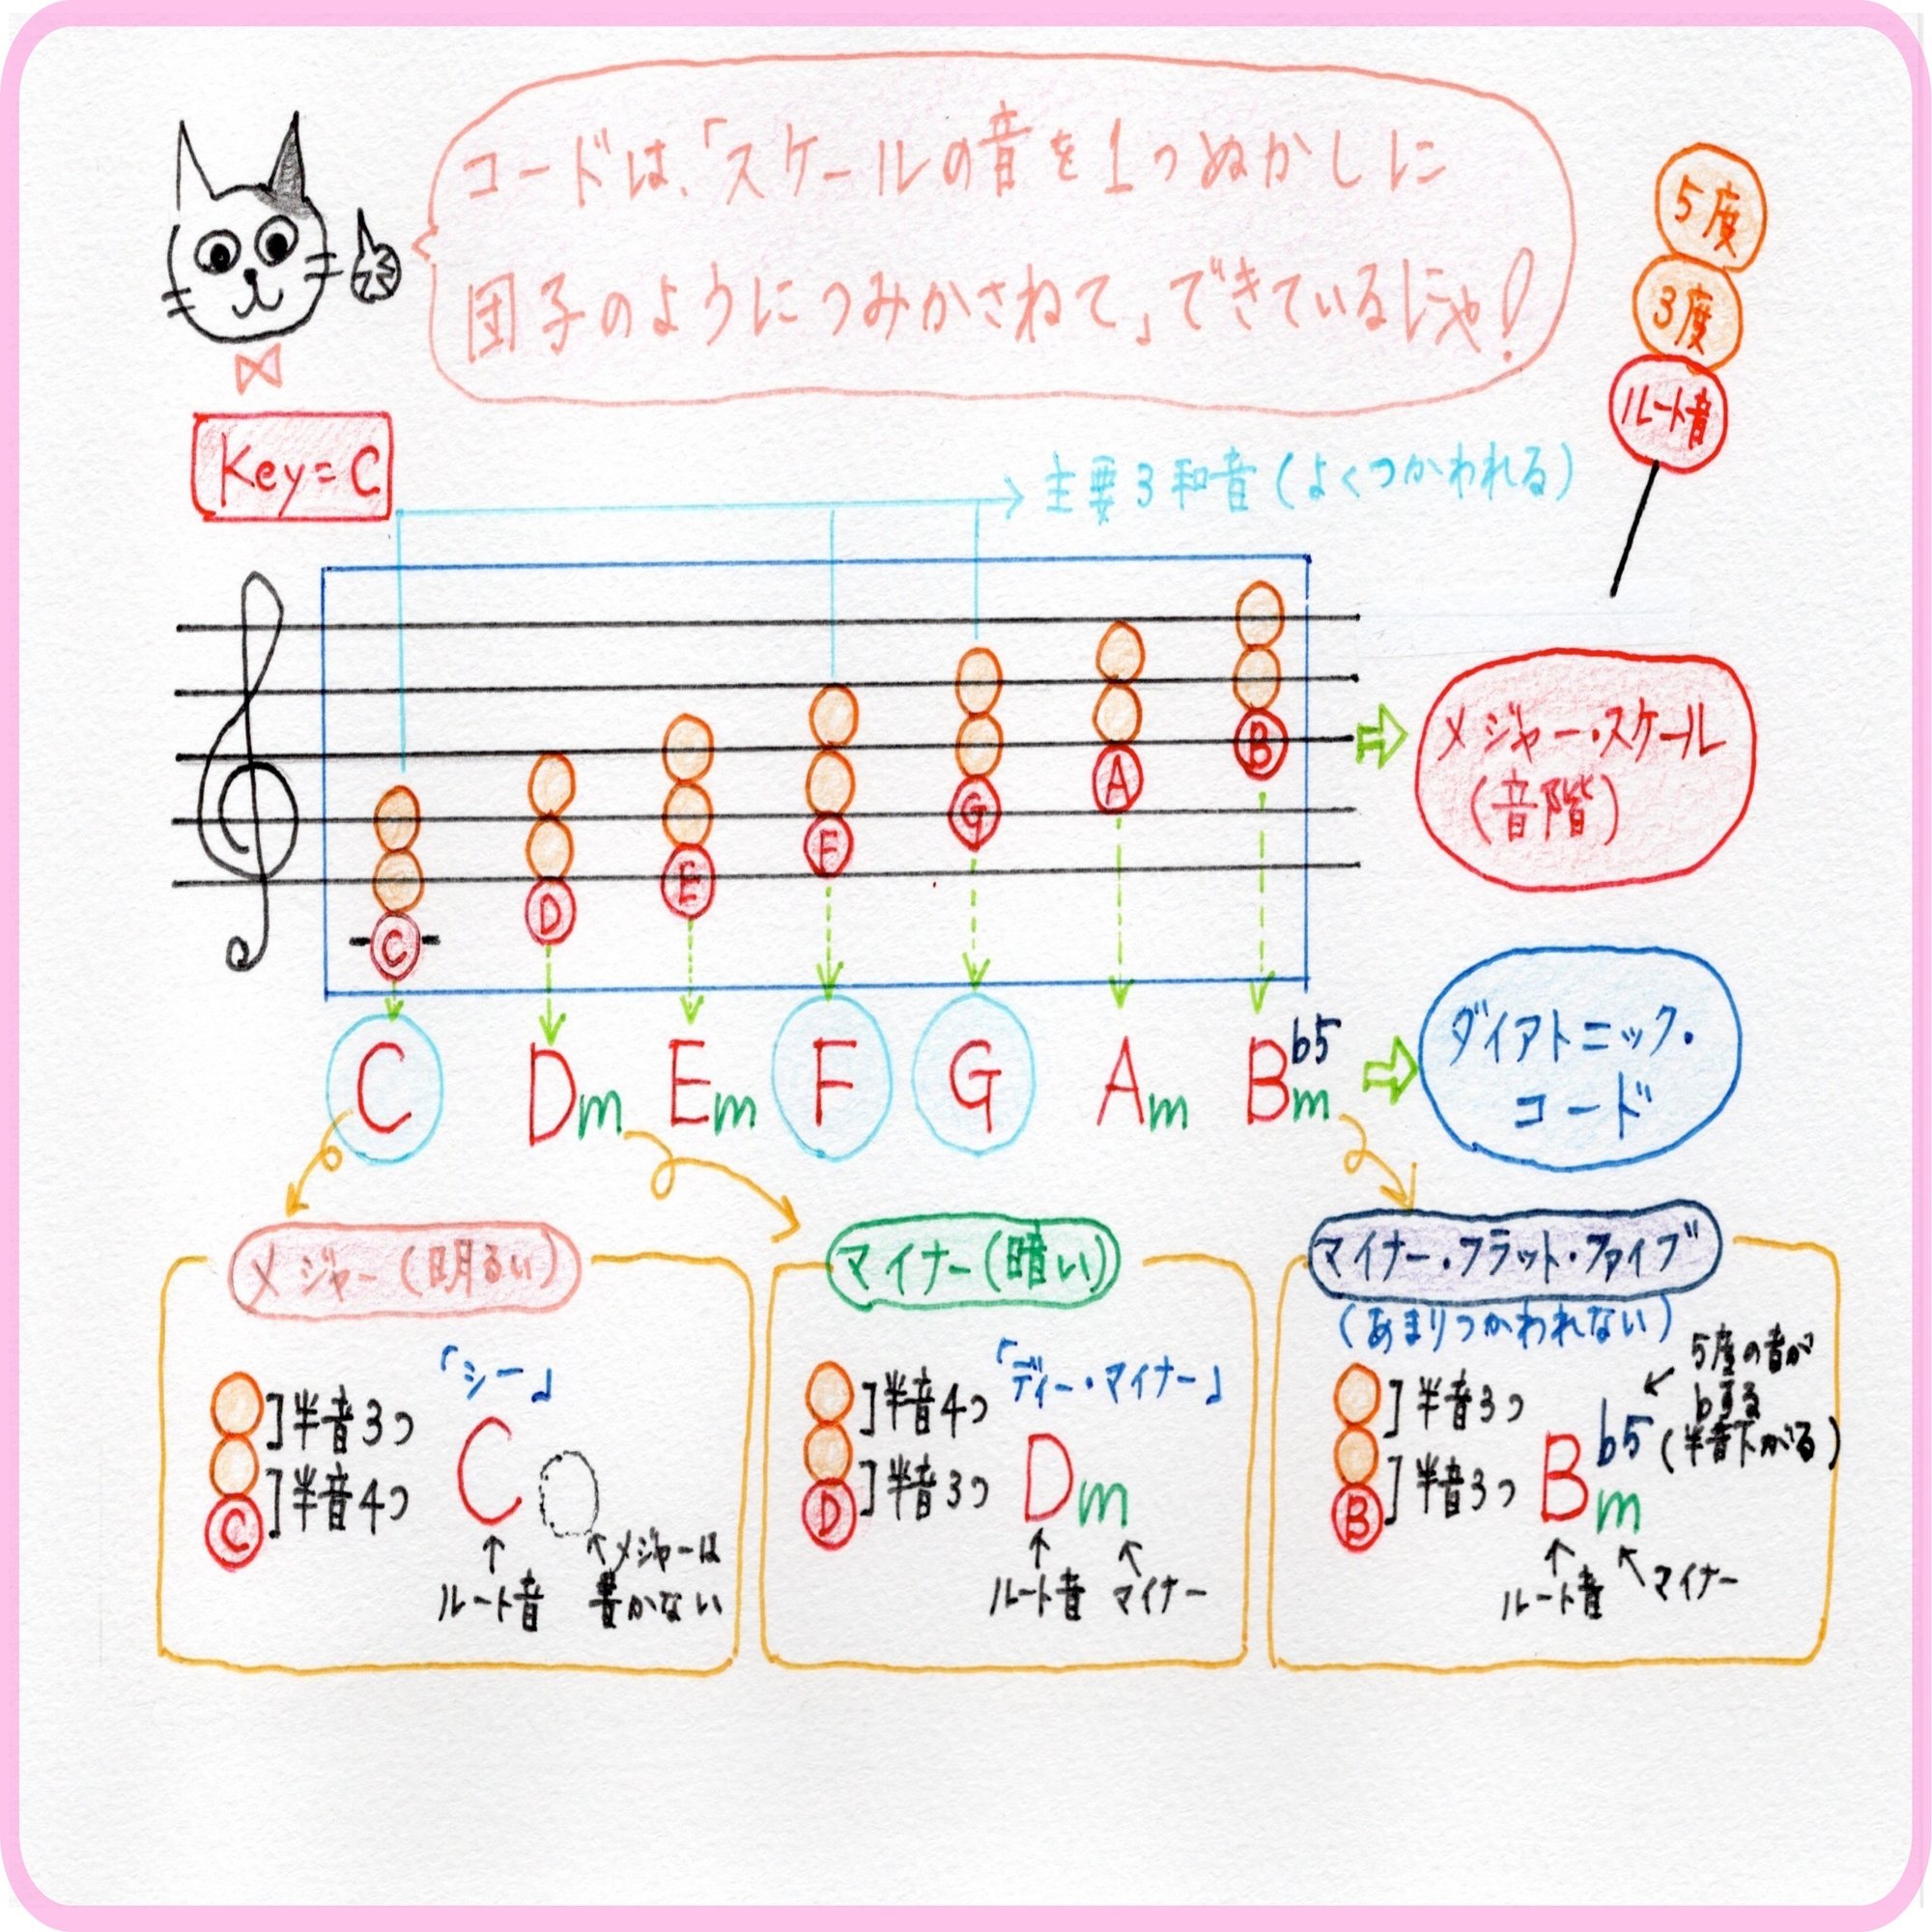 コードは、「スケールの音を1つぬかしに
団子のようにつみかさねて」できているにゃ!
5度
3度
ルート音
Key=C
主要3和音(よくつかわれる)
C
D
E
F
G
A
B
メジャー・スケール
(音階)
C
Dm
Em
F
G
Am
Bm♭5
ダイアトニック・
コード
メジャー(明るい)
「シー」
]半音3つ
]半音4つ
C
C
ルート音
メジャーは
書かない
マイナー(暗い)
「ディー・マイナー」
]半音4つ
]半音3つ
D
Dm
ルート音
マイナー
マイナー・フラット・ファイブ
(あまりつかわれない)
5度の音が
♭する
(半音下がる)
]半音3つ
]半音3つ
B
Bm♭5
ルート音
マイナー